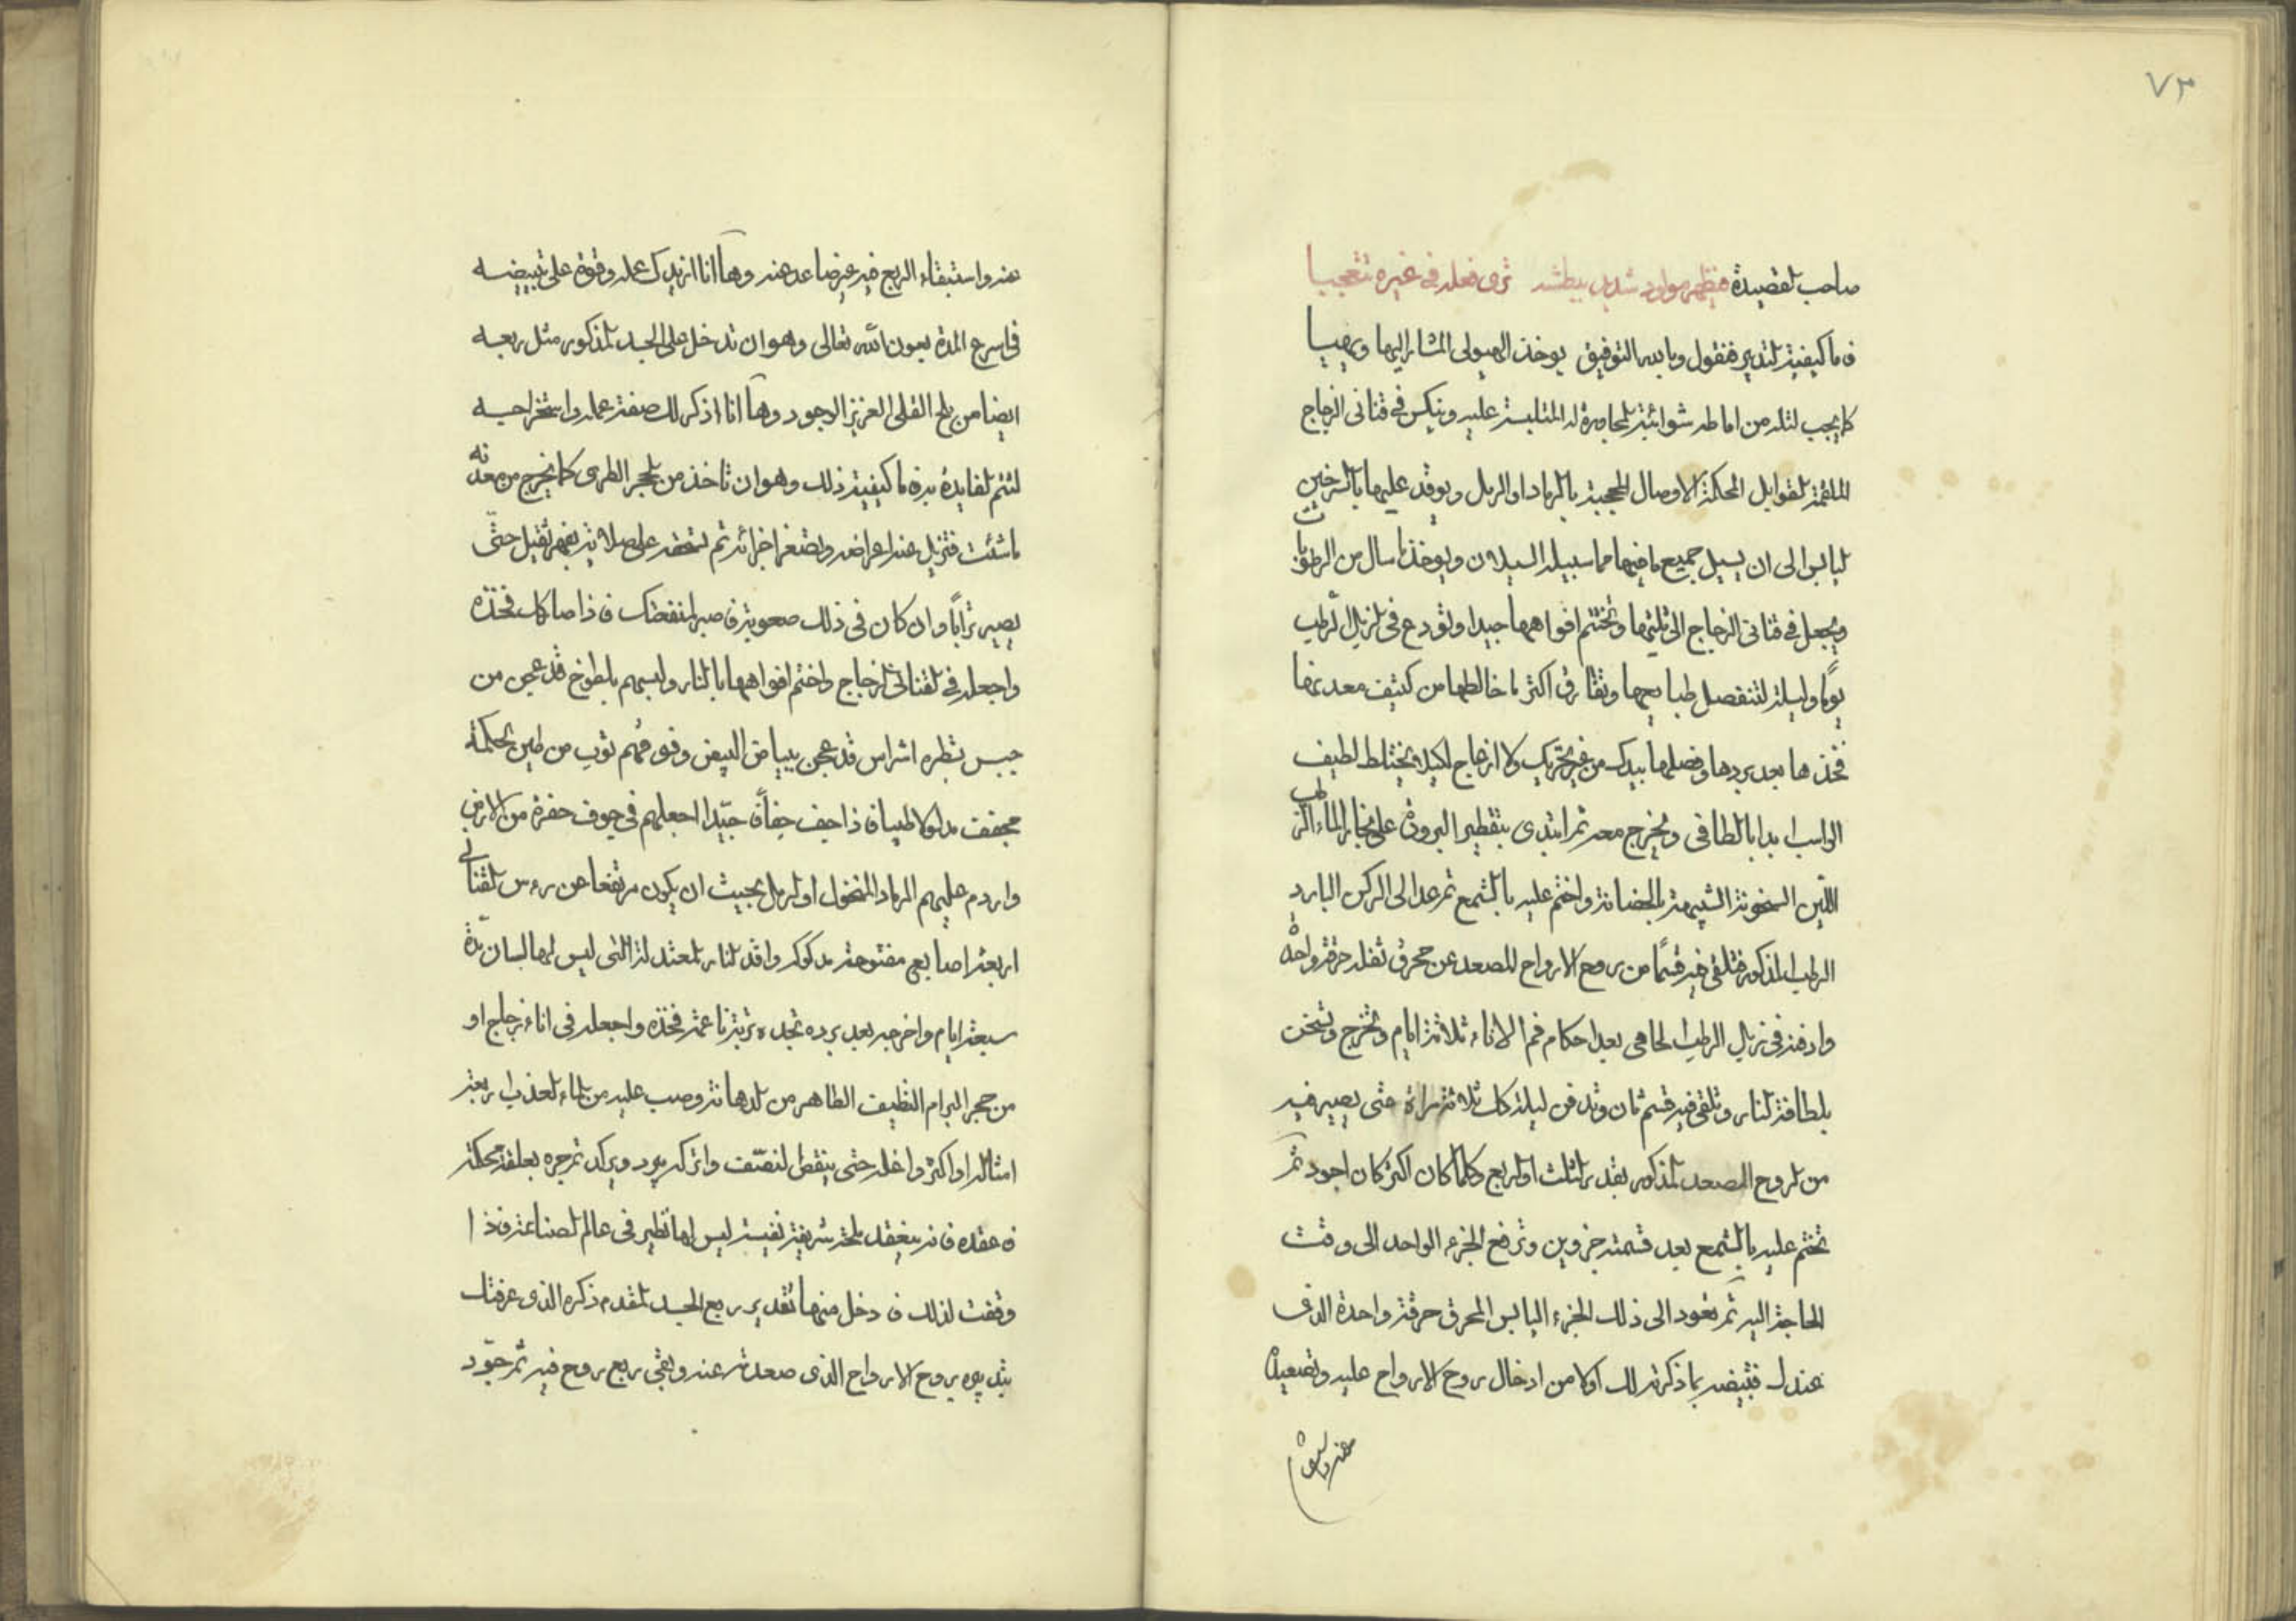 ٧٣
صاحب القصيدة فيظهر مولود شديد بطشه ترى فعله في غيره تتعجبا
فاما كيفية التدبير فنقول وبالله التوفيق يوخذ الهيولى المشار اليها ويهيا
كما يجب لتله من اماطه شوائبه المجاورة له الملتبسة عليه وينكس في قناني الزجاج
الملقمة القوابل المحكمة الاوصال المحجبة بالرماد او الرمل ويوقد عليها بالسرخين
اليابس الى ان يسيل جميع ما فيها مما سبيله السيلان ويوخذ ما سال من الرطوبات
ويجعل في قناني الزجاج الى ثلثيها وتختم افواهها جيدا وتودع في الزبل الرطب
يوما وليلة لتنفصل طبايعها وتفارق اكثر ما خالطها من كثيف معدنها
فخذها بعد بردها وفصلها بيدك من غير تحريك ولا ازعاج لكيلا يختلط لطيف
الراسب ابدا بالطافي ويخرج معه ثم ابتدى بتقطير البرودة على بخار الماء الرطب
اللين السخونة الشبيهة بالحضانة واختم عليه بالشمع ثم عد الى الركن البارد
الرطب المذكور فتلقى فيه قسما من روح الارواح المصعد عن محرق ثفله حرقة واحدة
وادفنه في زبل الرطب الحامي بعد احكام فم الاناء ثلاثة ايام وتخرج وتسخن
بلطافة النار وتلقى فيه قسم ثان وتدفن ليلة كل ثلاثة مراة حتى يصير فيه
من الروح المصعد المذكور بقدر الثلث او الربع وكلما كان اكثر كان اجود ثم
تختم عليه بالشمع بعد قسمته جزوين وترفع الجزء الواحد الى وقت
الحاجة اليه ثم تعود الى ذلك الجزء اليابس المحرق حرقة واحدة الذى
عندك فتبيضه بما ذكرته لك اولا من ادخال روح الارواح عليه وتصعيده
عنه واستبقاء
عنه واستبقاء الربع فيه غير ضاعد عنه وها انا ازيدك عمله وقوة على تبييضه
في اسرع المدة بعون الله تعالى وهو ان تدخل على الجسد المذكور مثل ربعه
ايضا من ملح القلى العزيز الوجود وها انا اذكر لك صفة عمله واستخراجه
لتتم الفايدة به فاما كيفية ذلك وهو ان تاخذ من الحجر الطرى كما يخرج من معدنه
ما شئت فتزيل عنه اعراضه وتصغر اجزائه ثم تسحقه على صلاية بفهر ثقيل حتى
يصير ترابا وان كان في ذلك صعوبة فاصبر لمنفعتك فاذا صار كك فخذه
واجعله في القناني الزجاج واختم افواهها بالنار ولبسهم بلطوخ قد عجن من
جبس بنظره اشراس قد عجن ببياض البيض وفوقهم ثوب من طين الحكمة
مجفف مدلوكا طيبا فاذا جف جفافا جيدا اجعلهم في جوف حفرة من الارض
واردم عليهم الرماد المنخول او الرمل بحيث ان يكون مرتفعا عن رءس القناني
اربعة اصابع مفتوحة مدكوكر واقد النار المعتدلة التي ليس لها لسان مدة
سبعة ايام واخرجه بعد برده تجده تربة ناعمة فخذه واجعله في اناء زجاج او
من حجر البرام النظيف الطاهر من الدهانة وصب عليه من الماء العذب اربعة
امثاله او اكثر واغله حتى ينقص لنصف واتركه يبرد ويركد ثم جره بعلقة محكمة
فاعقده فانه ينعقد ملحة شريفة نفيسة ليس لها نظير في عالم الصناعة فاذا
وقفت لذلك فادخل منها تقدير ربع الجسد المقدم ذكره الذى عرفتك
بتدبيره بروح الارواح الذى صعدته عنه وبقي ربع روح فيه ثم جود